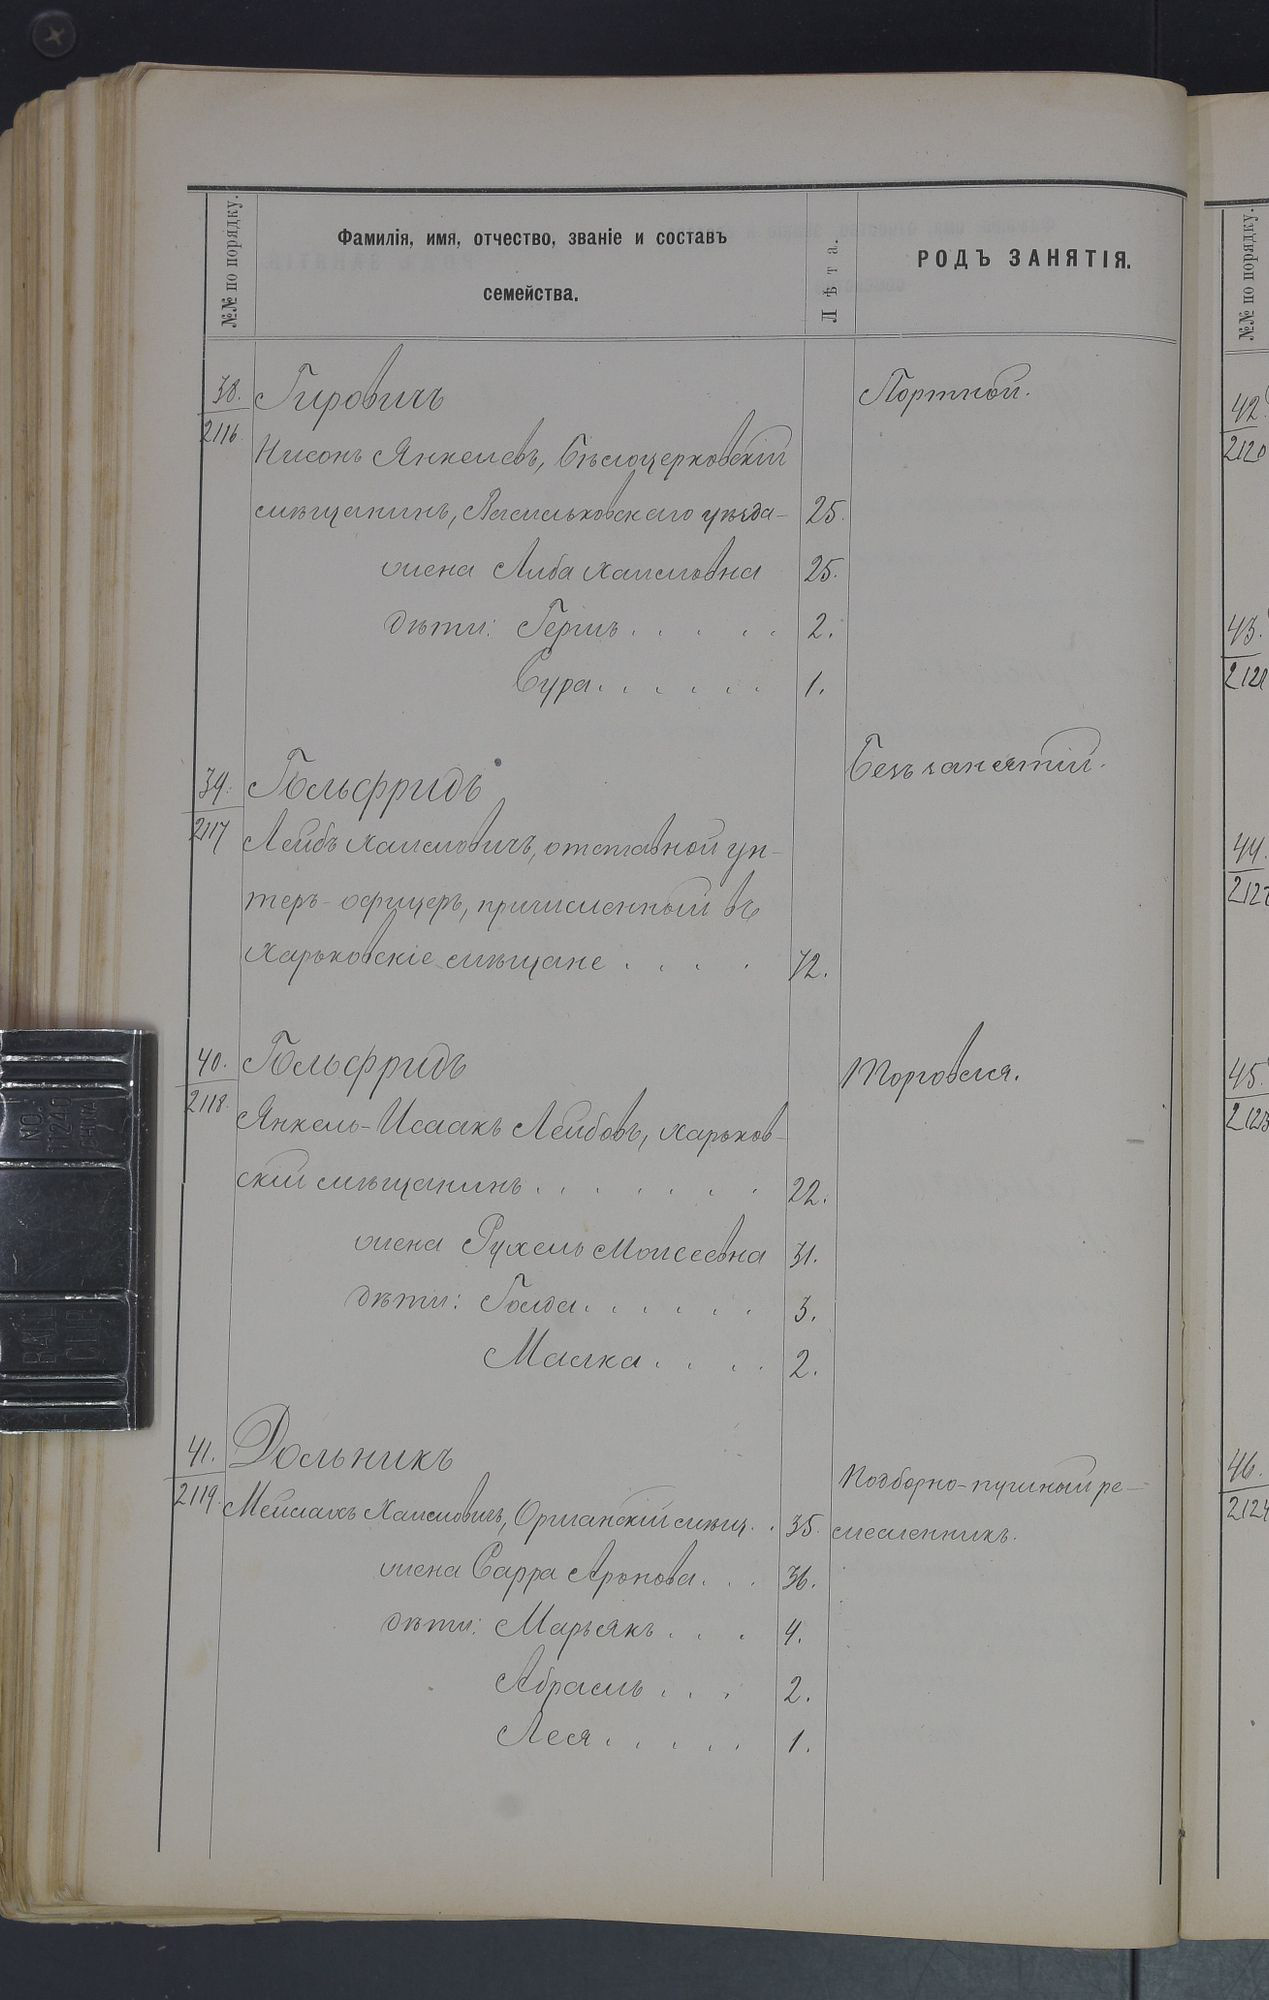 №№ по порядку.
Фамилія, имя, отчество, званіе и составъ
семейства.
Лѣта.
РОДЪ ЗАНЯТІЯ.
38.
2116.
Гировичъ
Портной.
Нисонъ Янкелевъ, Бѣлоцерковскій
мѣщанинъ, Васильковскаго уѣзда - 25.
жена Алба Хаимовна 25.
дѣти: Гершъ . . . . . 2.
Сура . . . . . . 1.
39.
2117
Гольфридъ
Безъ занятій.
Лейбъ Хаимовичъ, отставной ун-
теръ-офицеръ, причисленный въ
Харьковскіе мѣщане . . . . 72.
40.
2118.
Гольфридъ
Торговля.
Янкель-Исаакъ Лейбовъ, Харьков-
скій мѣщанинъ . . . . . . . 22.
жена Рухель Моисеевна 31.
дѣти: Голда . . . . . . 3.
Малка . . . . 2.
41.
2119.
Дольникъ
Подборно- ре-
Хаимовичъ, мѣщ. . 35.
месленникъ.
жена Сарра Аронова . . . 36.
дѣти: Марьякъ . . . 4.
Абрамъ . . . 2.
Лея . . . . . 1.
№№ по порядку.
42.
2120
43.
2121
44.
2122
45.
2123
46.
2124
NO.
51240
CHINA
BALL
CLIP